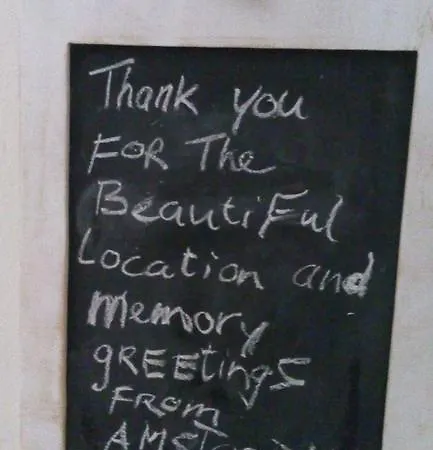 Thank you
FOR The
BeautiFul
Location and
Memory
gREEtingS
FROM